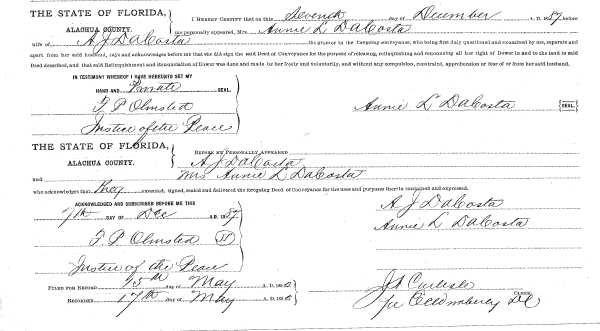 THE STATE OF FLORIDA,
ALACHUA COUNTY.
I HEREBY CERTIFY that on this Seventh day of December A. D. 1887, before
me personally appeared, Mrs. Annie L DaCosta
wife of A J DaCosta in the foregoing conveyance, who being first duly questioned and examined by me, separate and
apart from her said husband, says and acknowledges before me that she did sign the said Deed of Conveyance for the purpose of releasing, relinquishing and renouncing all her right of Dower in and to the land in said
Deed described, and that said Relinquishment and Renunciation of Dower was done and made by her freely and voluntarily, and without any compulsion, constraint, apprehension or fear of or from her said husband.
IN TESTIMONY WHEREOF I HAVE HEREUNTO SET MY
HAND AND Private SEAL.
F P Olmsted
Annie L DaCosta SEAL.
Justice of the Peace
THE STATE OF FLORIDA,
ALACHUA COUNTY.
BEFORE ME PERSONALLY APPEARED
A J DaCosta
and Mrs Annie L DaCosta
who acknowledges that they executed, signed, sealed and delivered the foregoing Deed of Conveyance for the uses and purposes therein contained and expressed.
ACKNOWLEDGED AND SUBSCRIBED BEFORE ME THIS
7th DAY OF Dec A.D. 1887
A J DaCosta
Annie L DaCosta
F P Olmsted
Justice of the Peace
FILED FOR RECORD 15th day of May A. D. 188
RECORDED 17th day of May A. D. 188
J A Carlisle
CLERK.
per